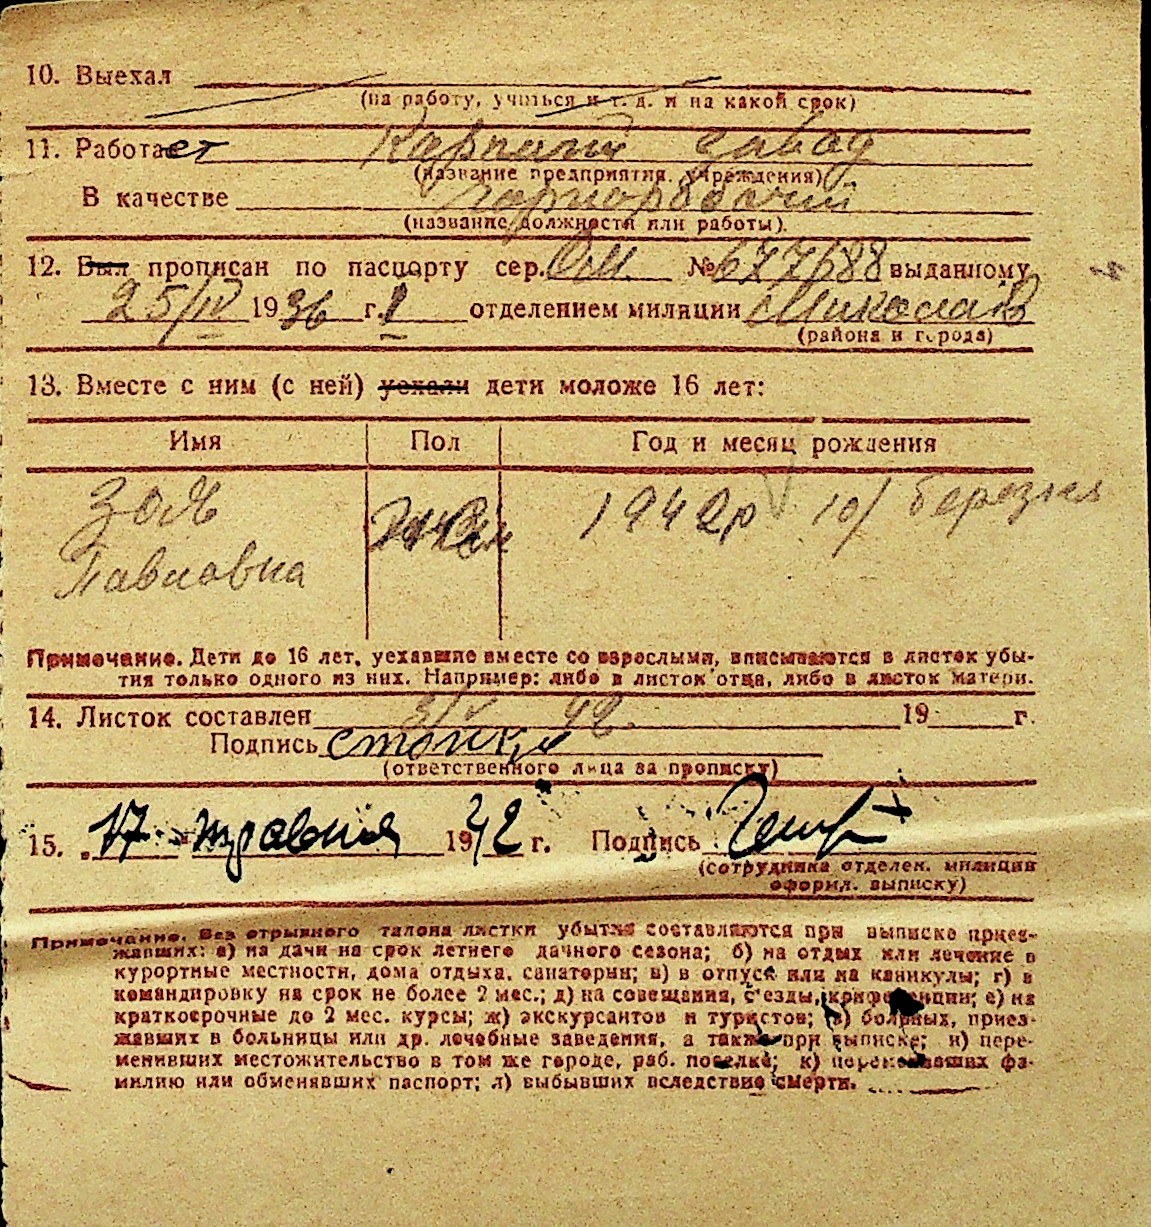 10. Выехал
(на работу, учиться и т. д. и на какой срок)
11. Работает завод
(название предприятия, учреждения)
В качестве чорнорабочий
(название должности или работы).
12. Был прописан по паспорту сер. № 677688 выданному
25/IV 1936 г. I отделением милиции Миколаїв
(района и города)
13. Вместе с ним (с ней) уехали дети моложе 16 лет:
Имя Пол Год и месяц рождения
Зоя 1942р 10/ березня
Павловна
Примечание. Дети до 16 лет, уехавшие вместе со взрослыми, вписываются в листок убы-
тия только одного из них. Например: либо в листок отца, либо в листок матери.
14. Листок составлен 3/V 42. 19 г.
Подпись
(ответственного лица за прописку)
15. „17 травня 1942 г. Подпись
(сотрудника отделен. милиции
оформл. выписку)
Примечание. Без отрывного талона листки убытия составляются при выписке приез-
жавших: а) на дачи на срок летнего дачного сезона; б) на отдых или лечение в
курортные местности, дома отдыха, санатории; в) в отпуск или на каникулы; г) в
командировку на срок не более 2 мес.; д) на совещания, с'езды, конференции; е) на
краткосрочные до 2 мес. курсы; ж) экскурсантов и туристов; з) больных, приез-
жавших в больницы или др. лечебные заведения, а также при выписке; и) пере-
менивших местожительство в том же городе, раб. поселке; к) переменивших фа-
милию или обменявших паспорт; л) выбывших вследствие смерти.